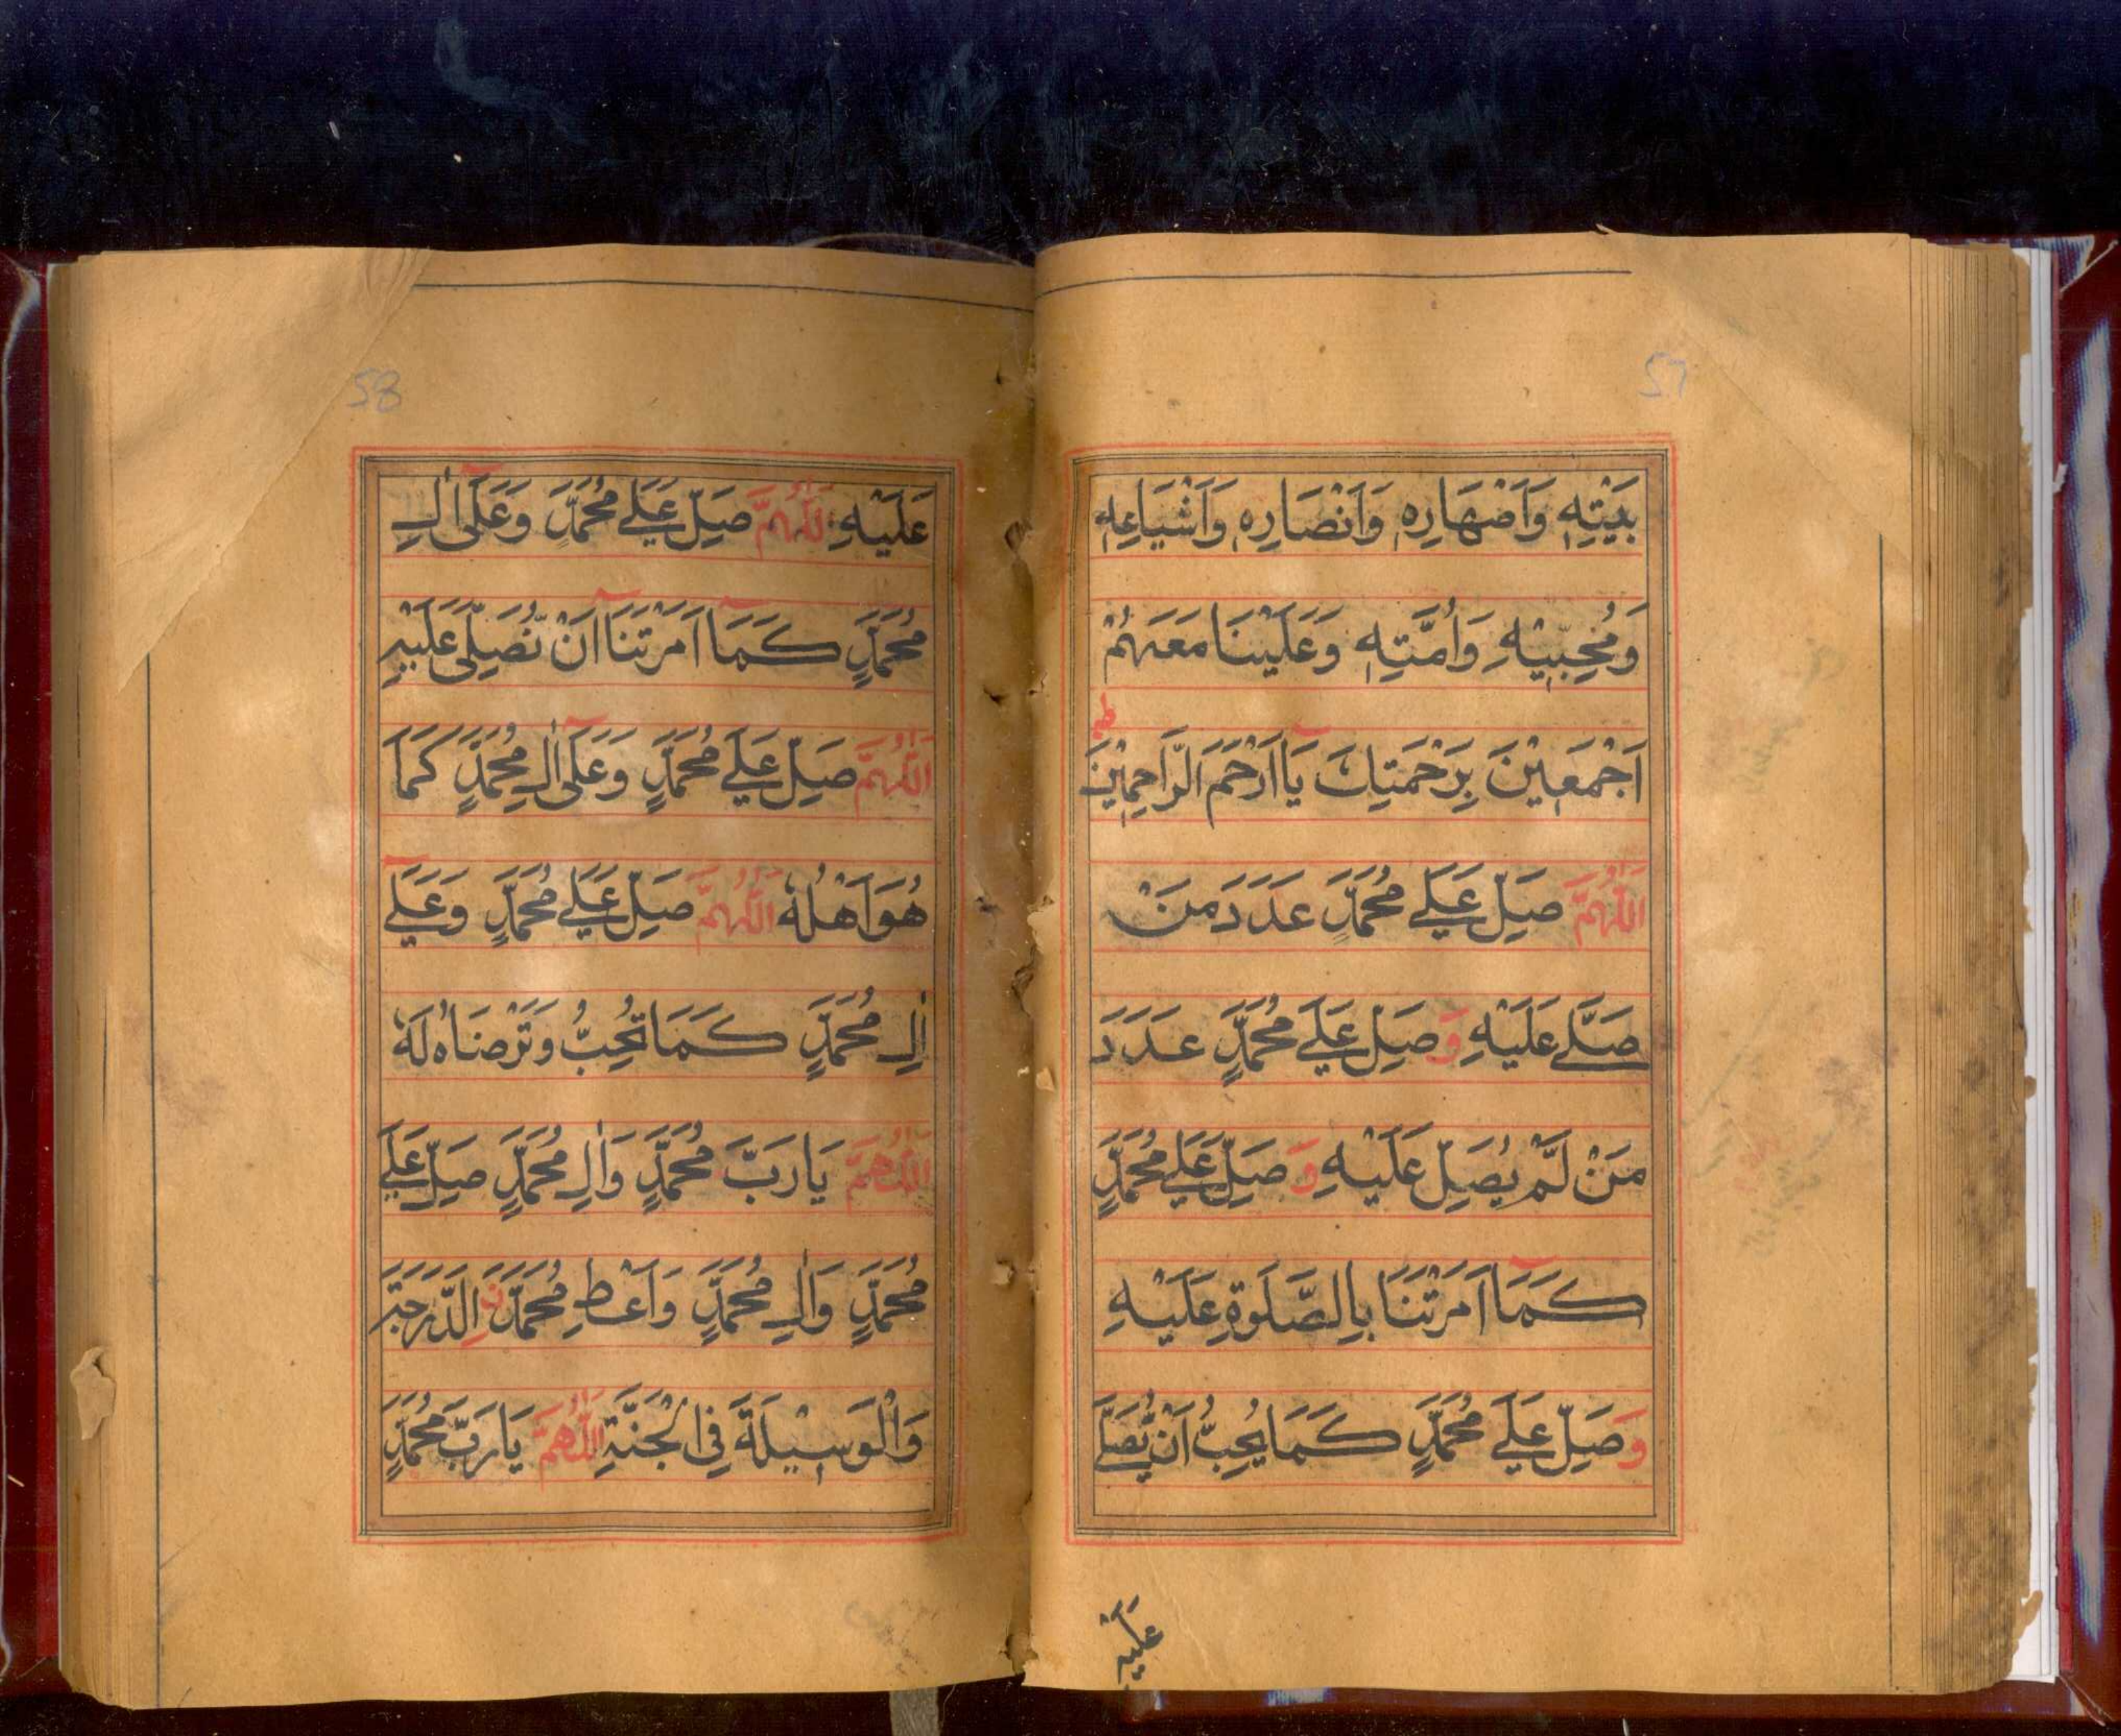 57
بَيْتِهٖ وَاَصْهَارِهٖ وَاَنْصَارِهٖ وَاَشْيَاعِهٖ
وَمُحِبِّيْهِ وَاُمَّتِهٖ وَعَلَيْنَا مَعَهُمْ
اَجْمَعِيْنَ بِرَحْمَتِكَ يَا اَرْحَمَ الرَّاحِمِيْنَ
اَللّٰهُمَّ صَلِّ عَلٰے مُحَمَّدٍ عَدَدَ مَنْ
صَلّٰے عَلَيْهِ وَصَلِّ عَلٰے مُحَمَّدٍ عَدَدَ
مَنْ لَّمْ يُصَلِّ عَلَيْهِ وَصَلِّ عَلٰے مُحَمَّدٍ
كَمَا اَمَرْتَنَا بِالصَّلٰوةِ عَلَيْهِ
وَصَلِّ عَلٰے مُحَمَّدٍ كَمَا يُحِبُّ اَنْ يُّصَلّٰے
عَلَيْهِ
58
عَلَيْهِ اَللّٰهُمَّ صَلِّ عَلٰے مُحَمَّدٍ وَعَلٰى اٰلِ
مُحَمَّدٍ كَمَا اَمَرْتَنَا اَنْ نُّصَلِّىَ عَلَيْهِ
اَللّٰهُمَّ صَلِّ عَلٰے مُحَمَّدٍ وَعَلٰى اٰلِ مُحَمَّدٍ كَمَا
هُوَ اَهْلُهٗ اَللّٰهُمَّ صَلِّ عَلٰے مُحَمَّدٍ وَعَلٰے
اٰلِ مُحَمَّدٍ كَمَا تُحِبُّ وَتَرْضَاهُ لَهٗ
اَللّٰهُمَّ يَا رَبَّ مُحَمَّدٍ وَاٰلِ مُحَمَّدٍ صَلِّ عَلٰے
مُحَمَّدٍ وَاٰلِ مُحَمَّدٍ وَاَعْطِ مُحَمَّدَنِ الدَّرَجَةَ
وَالْوَسِيْلَةَ فِى الْجَنَّةِ اَللّٰهُمَّ يَا رَبَّ مُحَمَّدٍ